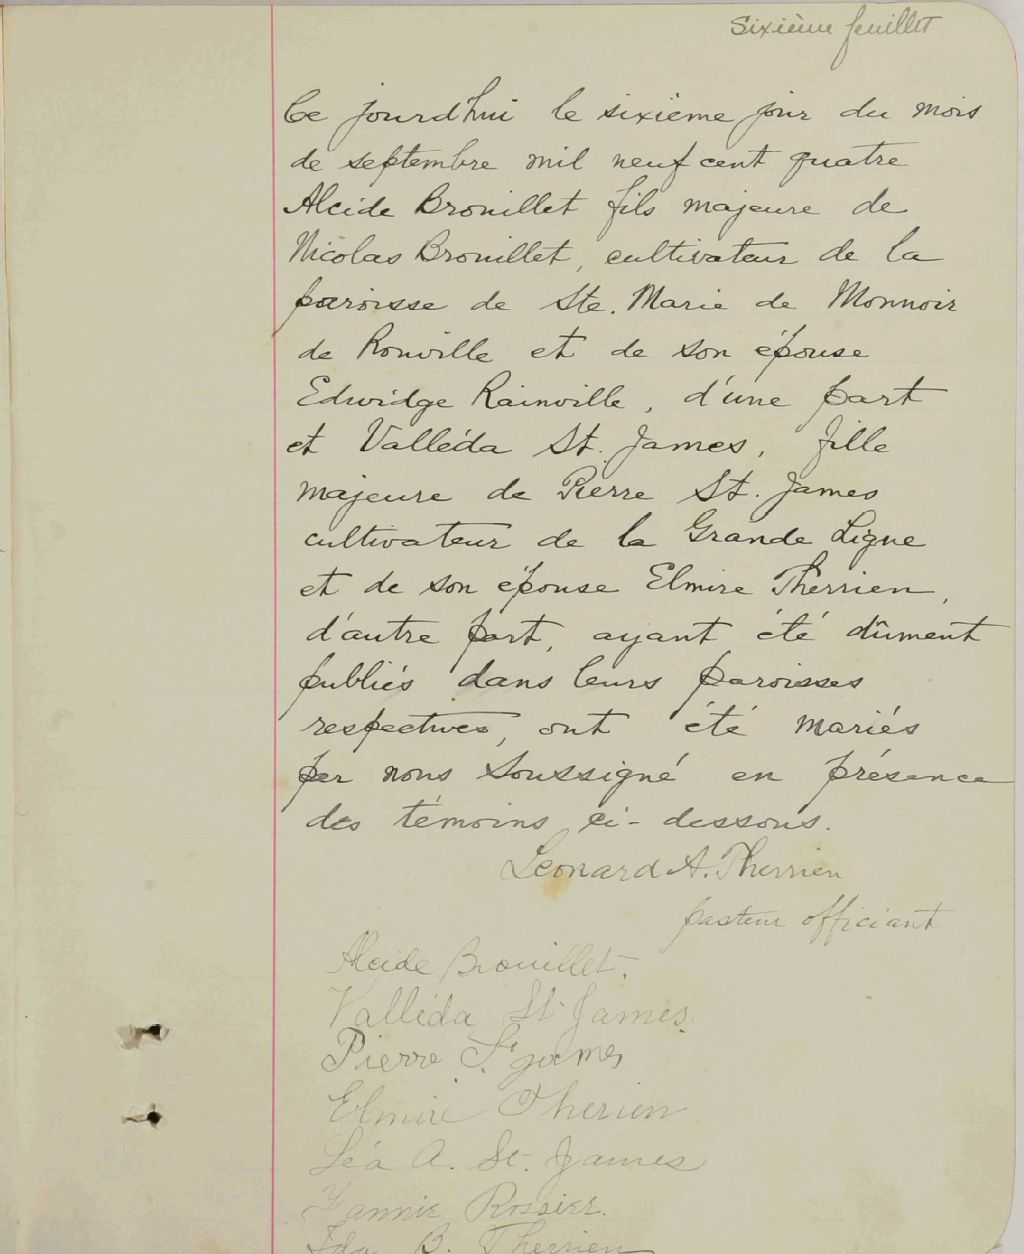 Sixième feuillet
Ce jourd'hui le sixième jour du mois
de septembre mil neuf cent quatre
Alcide Brouillet fils majeure de
Nicolas Brouillet, cultivateur de la
paroisse de Ste. Marie de Monnoir
de Rouville et de son épouse
Edwidge Rainville, d'une part
et Valléda St. James, fille
majeure de Pierre St. James
cultivateur de la Grande Ligne
et de son épouse Elmire Therrien,
d'autre part, ayant été dûment
publiés dans leurs paroisses
respectives, ont été mariés
par nous soussigné en présence
des témoins ci-dessous.
Leonard A. Therrien
pasteur officiant
Alcide Brouillet.
Valléda St. James.
Pierre St James
Elmire Therien
Léa A. St. James
Fannie Rossier.
Ida B. Therrien